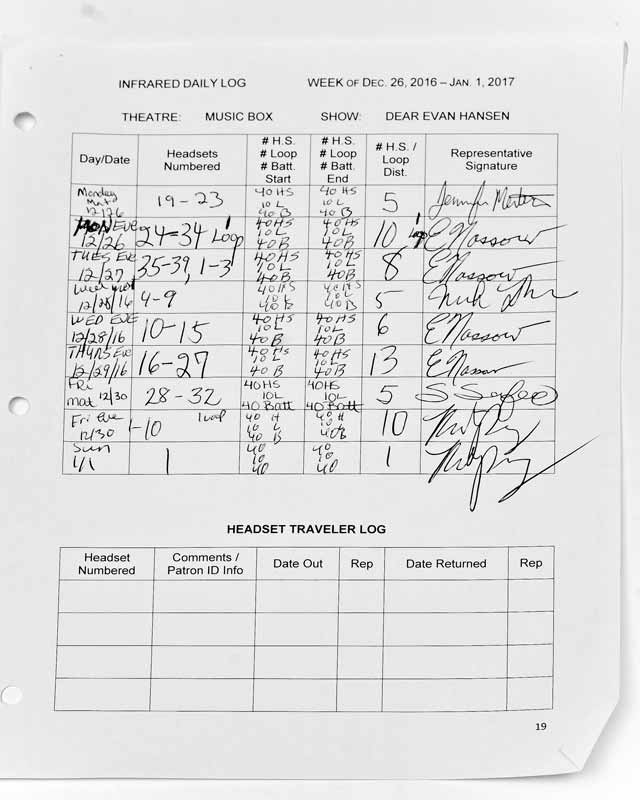 INFRARED DAILY LOG WEEK OF DEC. 26, 2016 – JAN. 1, 2017
THEATRE: MUSIC BOX SHOW: DEAR EVAN HANSEN
Day/Date Headsets Numbered # H.S. # Loop # Batt. Start # H.S. # Loop # Batt. End # H.S. / Loop Dist. Representative Signature
Monday Mat 12/26 19-23 40 HS 10 L 40 B 40 HS 10 L 40 B 5 Jennifer
MON EVE 12/26 24-34 1 Loop 40HS 10L 40B 40HS 10L 40B 10 1 Loop E Nassow
TUES EVE 12/27 35-39, 1-3 40HS 10L 40B 40HS 10L 40B 8 E Nassow
Wed mat 12/28/16 4-9 40 HS 10 L 40 B 40 HS 10 L 40 B 5
WED EVE 12/28/16 10-15 40HS 10L 40B 40HS 10L 40B 6 E Nassow
THURS Eve 12/29/16 16-27 40HS 10L 40B 40HS 10L 40B 13 E Nassow
Fri mat 12/30 28-32 40HS 10L 40 Batt 40HS 10L 40 Batt 5 S
Fri Eve 12/30 1-10 1 Loop 40 H 10 L 40 B 40 H 10 L 40B 10
Sun 1/1 1 40 10 40 40 10 40 1
HEADSET TRAVELER LOG
Headset Numbered Comments / Patron ID Info Date Out Rep Date Returned Rep
19